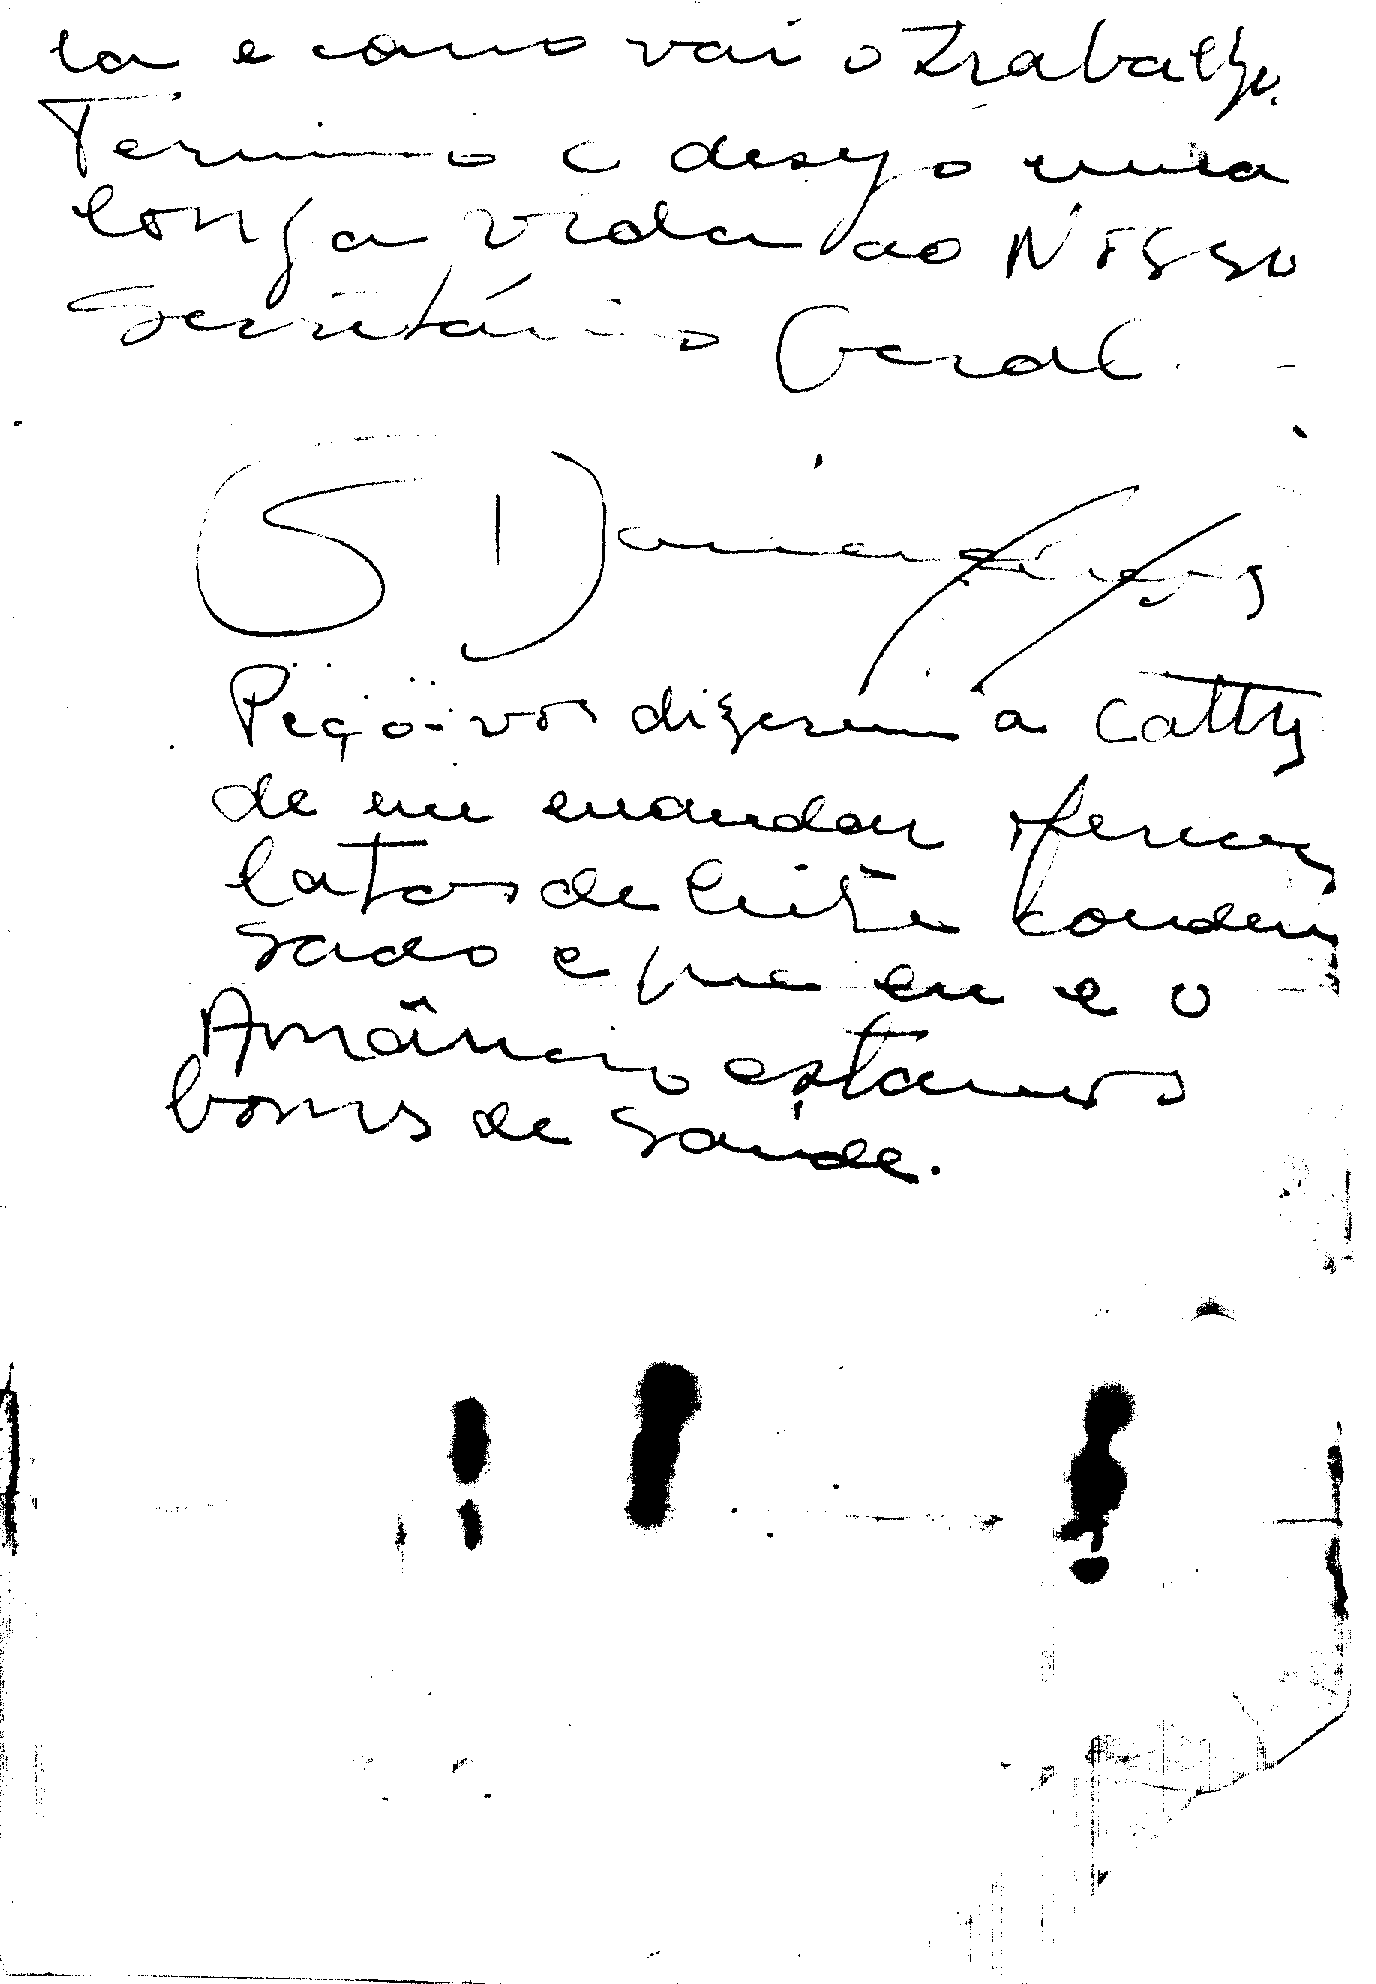 la e como vai o trabalho.
Termino e desejo uma
longa vida ao Nosso
Secretário Geral.
Peço-vos dizerem a Catty
de me mandar
latas de leite conden
sado e que eu e o
Amâncio estamos
bons de saúde.